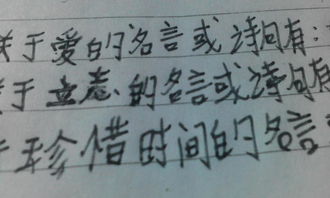 关于爱的名言或诗句有:
于立志的名言或诗句有
珍惜时间的名言